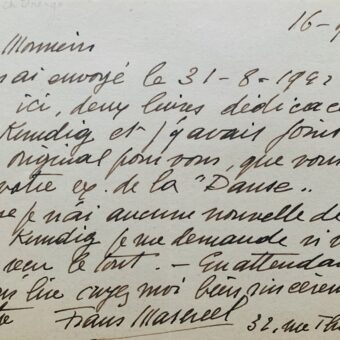 16-
Monsieur
ai envoyé le 31-8-194
ici, deux livres dédicac
Kundig et j'y avais join
original pour vous, que vous
votre ex. de la "Danse„.
e je n'ai aucune nouvelle de
Kundig je me demande si v
reçu le tout. — En attenda
lire croyez moi bien sincèrem
Frans Masereel
32, rue